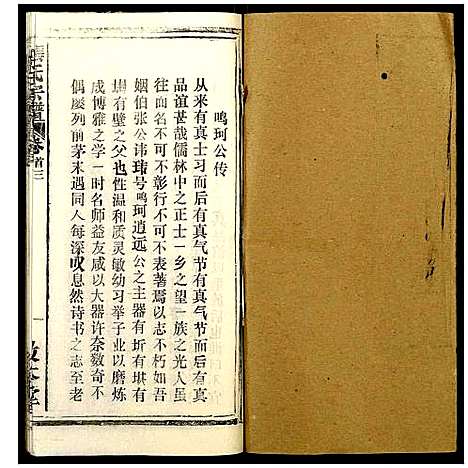 鸣珂公传
从来有真士习而后有真气节有真气节而后有真
品谊甚哉儒林中之正士一乡之望一族之光人虽
往不可不彰行不可不表著焉以志不朽如吾
姻伯张公讳玮号鸣珂逍远公之主器有圻有堪有
有璧之父也性温和质灵敏幼习举子业以磨炼
成博雅之学一时名师益友咸以大器许奈数奇不
偶屡列前茅未遇同人每深叹息然诗书之志至老
氏宗谱
卷首三
一